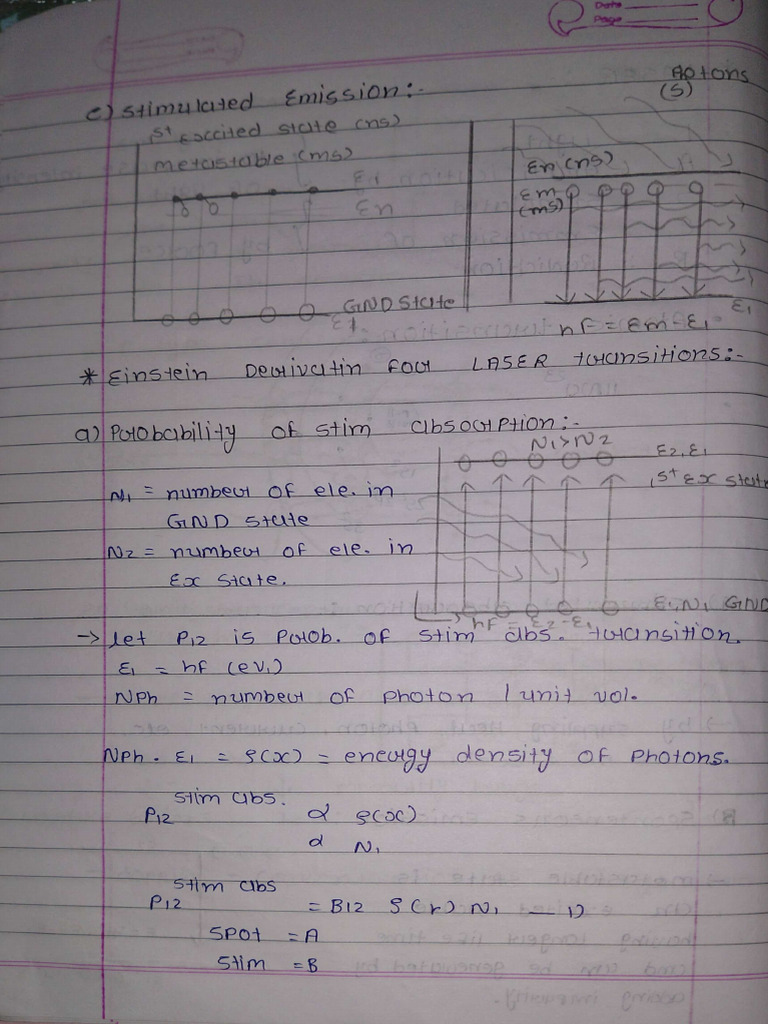 Date
Page
c) Stimulated Emission:-
Potons
(S)
1st Excited state (ns)
metastable (ms)
En (ns)
E1
En
Em
(ms)
GND State
E1
E1
hf = Em - E1
* Einstein Derivatin For LASER transitions:-
a) Probability of stim absorption:-
N1 > N2
E2, E1
1st Ex state
N1 = number of ele. in
GND state
N2 = number of ele. in
Ex state.
E1, N1 GND
hf = E2 - E1
→ let P12 is Prob. of stim abs. transition.
E1 = hf (ev.)
NPh = number of photon / unit vol.
NPh . E1 = ρ(x) = energy density of Photons.
P12 stim abs. α ρ(x)
α N1
P12 stim abs = B12 ρ(r) N1 — 1)
SPot = A
Stim = B